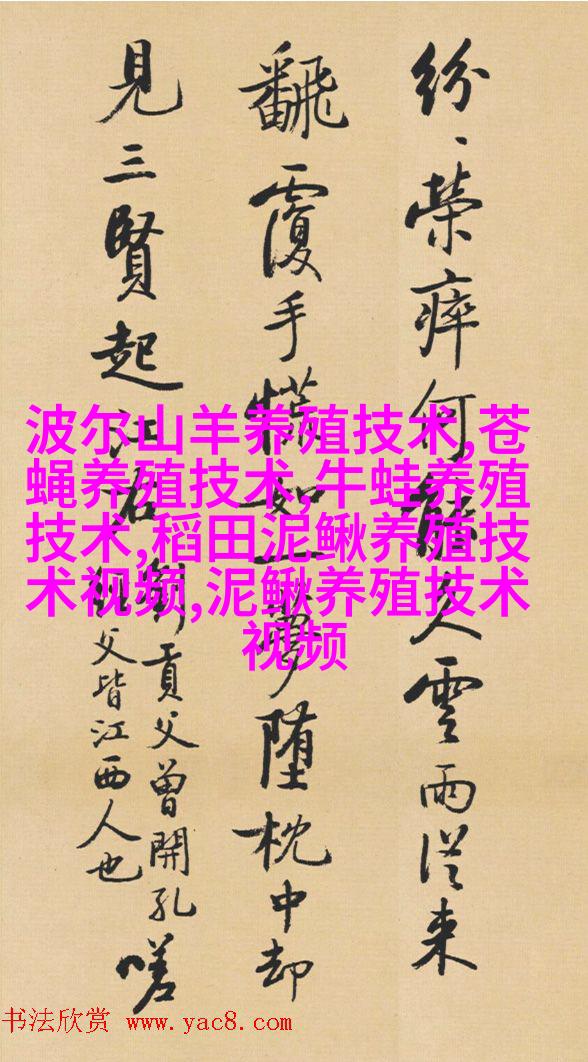 紛、榮瘁何能久雲雨從来
翻覆手慌如一夢堕枕中却
見三賢起江右
劉貢父曾開孔
經父皆江西人也
嗟
波尔山羊养殖技术,苍
蝇养殖技术,牛蛙养殖
技术,稻田泥鳅养殖技
术视频,泥鳅养殖技术
视频
书法欣赏 www.yac8.com